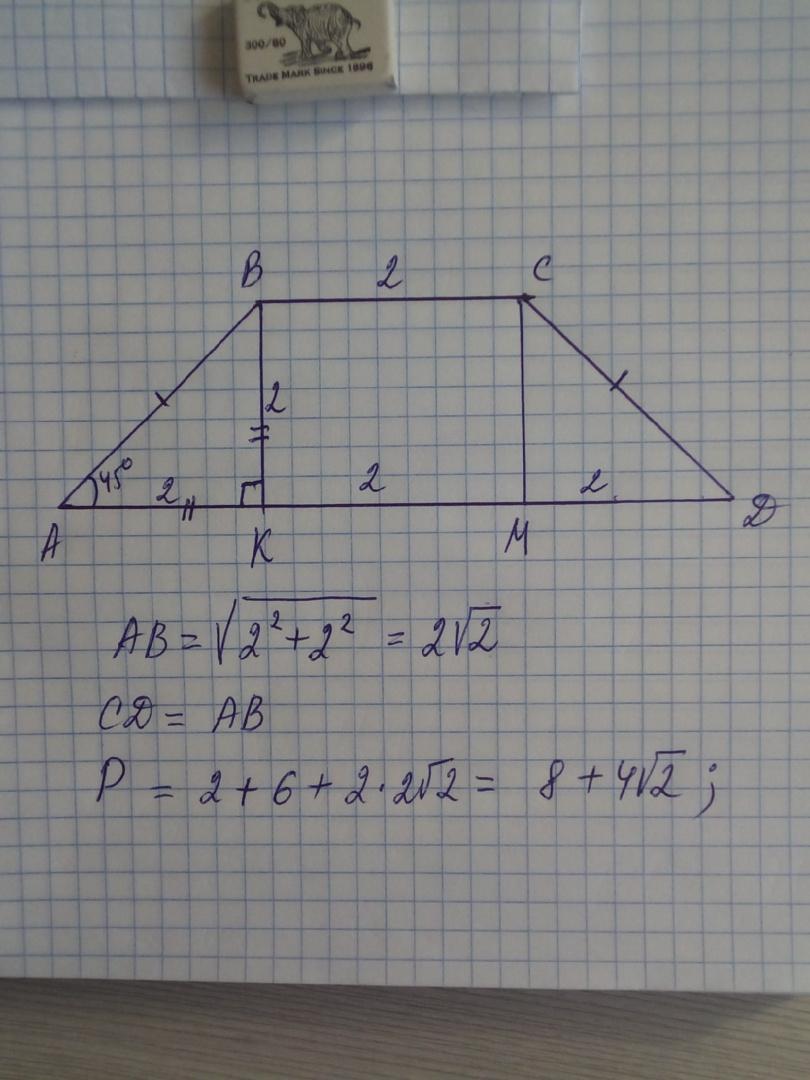 300/80
TRADE MARK SINCE 1896
B 2 C
2
45° 2 2 2
A K M D
AB = √(2² + 2²) = 2√2
CD = AB
P = 2 + 6 + 2 · 2√2 = 8 + 4√2 ;